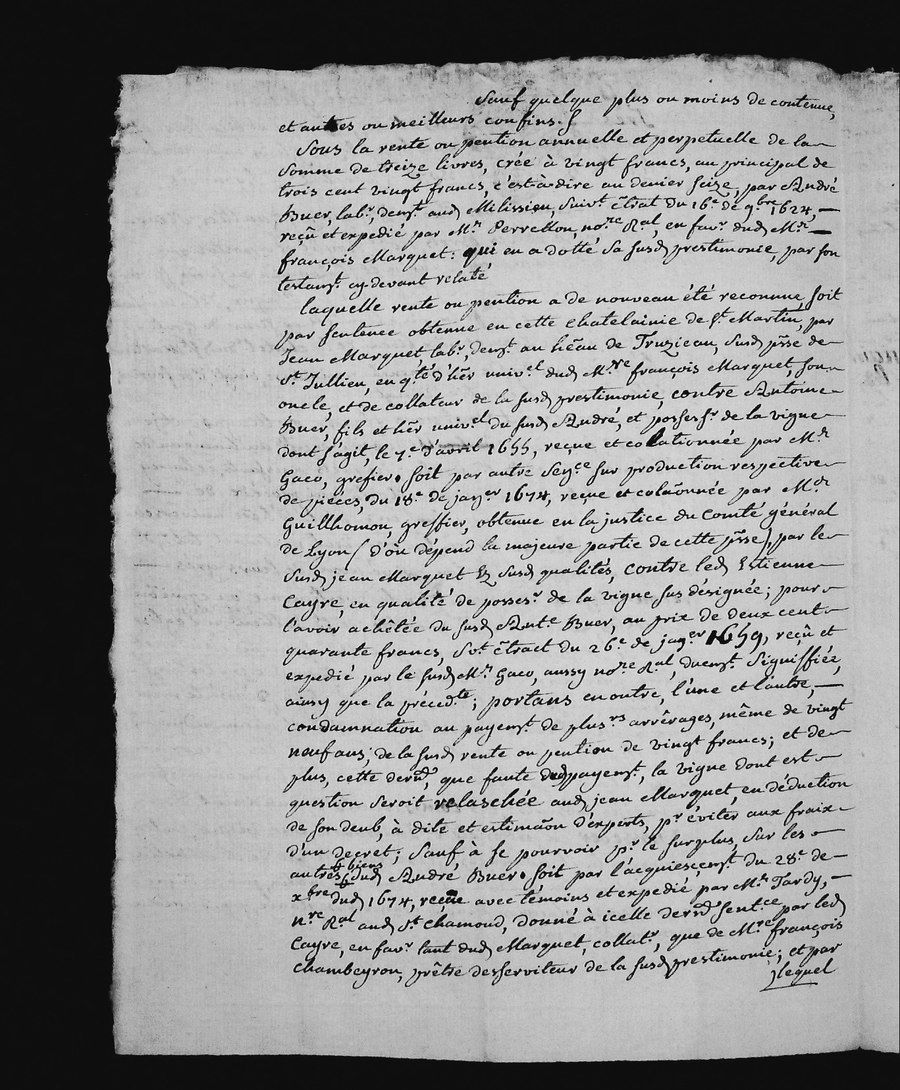 Sauf quelque plus ou moins de contenue,
et autres ou meilleurs confins.
Sous la rente ou pention annuelle et perpetuelle de la
Somme de treize livres, créé à vingt francs, au principal de
trois cent vingt francs, c'est-à-dire au denier seize, par André
Buer, labr, demt. aud Milission, suivt. c̃trat du 16e. de 9bre 1624,
reçu et expedié par Mr. Perrellon, nore Ral, en favr. dud Mre
françois Marquet: qui en a dotté sa susd prestimonie, par son
testamt. cy-devant relaté
laquelle rente ou pention a de nouveau été reconnue, soit
par sentence obtenue en cette chatelainie de St. Martin, par
Jean Marquet labr. demt. au hẽau de Truzieau, susd pr̃sse de
St. Jullien, en qté d'hẽr univel dud Mre françois Marquet, son
oncle, et de collateur de la susd prestimonie, contre Antoine
Buer, fils et hẽr univel du susd André, et possessr. de la vigne
dont s'agit, le 7e d'avril 1655, reçue et colationnée par Mr.
Gaco, grefier. soit par autre Sence sur production respective
de pieces, du 18e de janer 1674, reçue et colãonnée par Mr.
Guillhomon, greffier, obtenue en la justice du Comté général
de Lyon (d'où dépend la majeure partie de cette pr̃sse), par le
susd jean Marquet ez susd qualités, contre led Estienne
Cayre, en qualité de possesr. de la vigne sus désignée; pour
l'avoir achêtée du susd Ante Buer, au prix de deux cent
quarante francs, svt. c̃tract du 26e. de janer 1659, reçu et
expedié par le susd Mr. Gaco, aussy nore Ral, duemt. signiffiée,
ainsy que la précedte; portans en outre, l'une et l'autre,
condamnation au payemt. de plusrs arrérages, même de vingt
neuf ans; de la susd rente ou pention de vingt francs; et de
plus, cette dernre, que faute dud payemt., la vigne dont est
question seroit relaschée aud jean Marquet, en déduction
de son deub, à dite et estimãon d'experts, pr éviter aux fraix
d'un decret; sauf, à se pourvoir pr. le surplus, sur les
autres biens dud André Buer. soit par l'acquiescemt. du 28e. de
xbre dud 1674, reçue avec témoins et expedié par Mr. Tardy,
nre Ral aud St. chamond, donné à icelle dernre sentce par led
Cayre, en favr. tant dud Marquet, collatr, que de Mre françois
Chambeyron, prêtre desserviteur de la susd prestimonie; et par
lequel